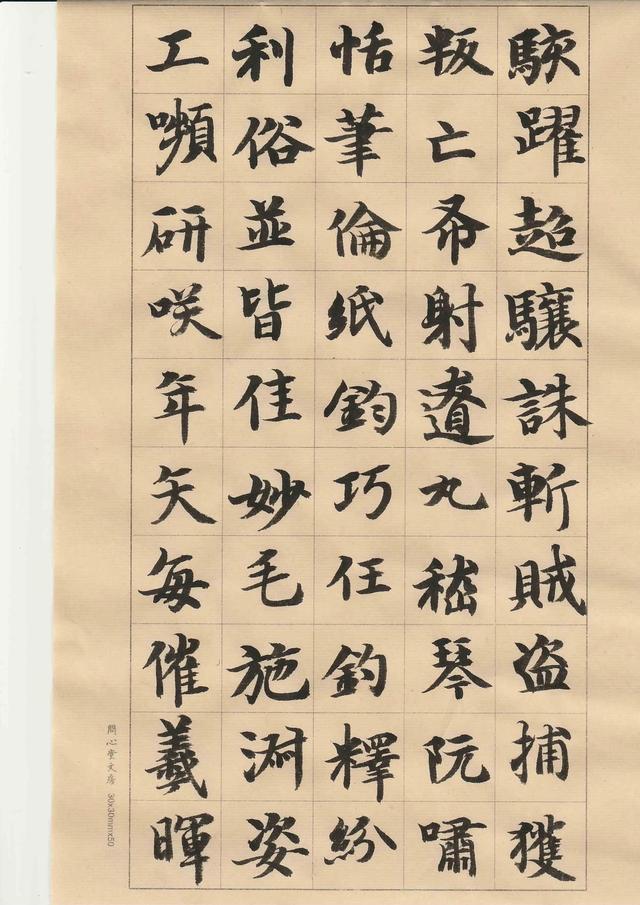 駭躍超驤誅斬賊盜捕獲
叛亡布射遼丸嵇琴阮嘯
恬筆倫紙鈞巧任釣釋紛
利俗並皆佳妙毛施淑姿
工嚬研咲年矢每催羲暉
問心堂文房 30x30mmx50